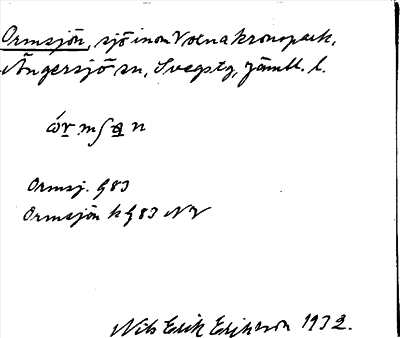 Ormsjön, sjö inom Voxna kronopark,
Ängersjö sn, Svegs tg, Jämtl. l.
Ormsj. G83
Ormsjön k G83 NV
Nils Erik Eriksson 1932.